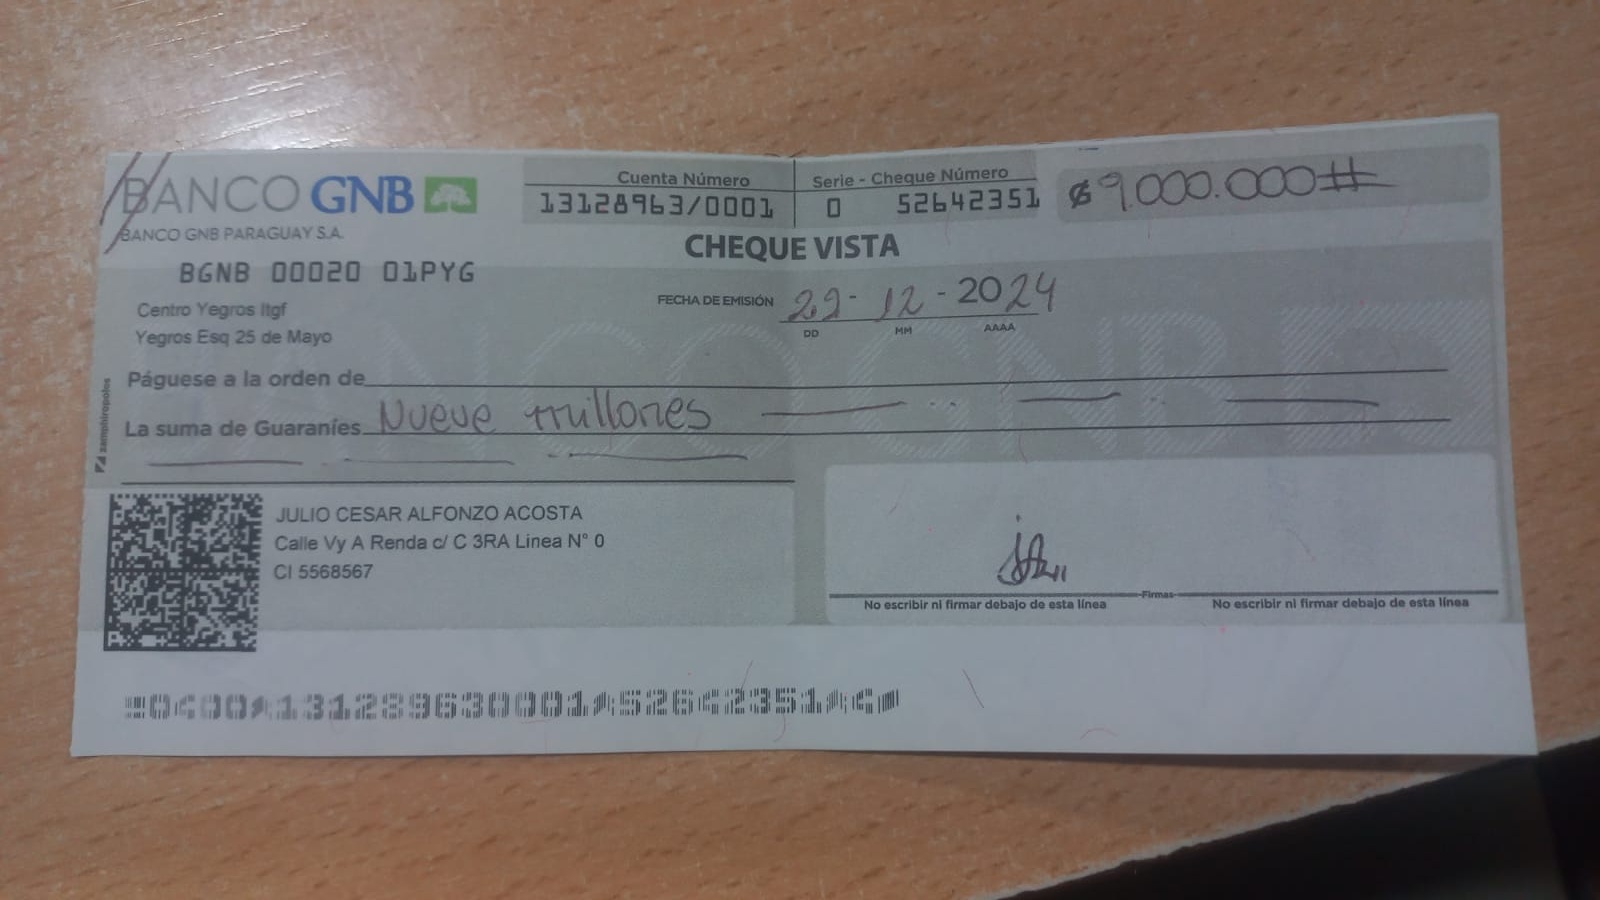 BANCO GNB
BANCO GNB PARAGUAY S.A.
Cuenta Número
13128963/0001
Serie - Cheque Número
0 52642351
₲ 9.000.000#
CHEQUE VISTA
BGNB 00020 01PYG
Centro Yegros Itgf
Yegros Esq 25 de Mayo
FECHA DE EMISIÓN 29 - 12 - 2024
DD MM AAAA
Páguese a la orden de
La suma de Guaraníes Nueve millones
zamphiropolos
JULIO CESAR ALFONZO ACOSTA
Calle Vy A Renda c/ C 3RA Linea N° 0
CI 5568567
Firmas
No escribir ni firmar debajo de esta línea No escribir ni firmar debajo de esta línea